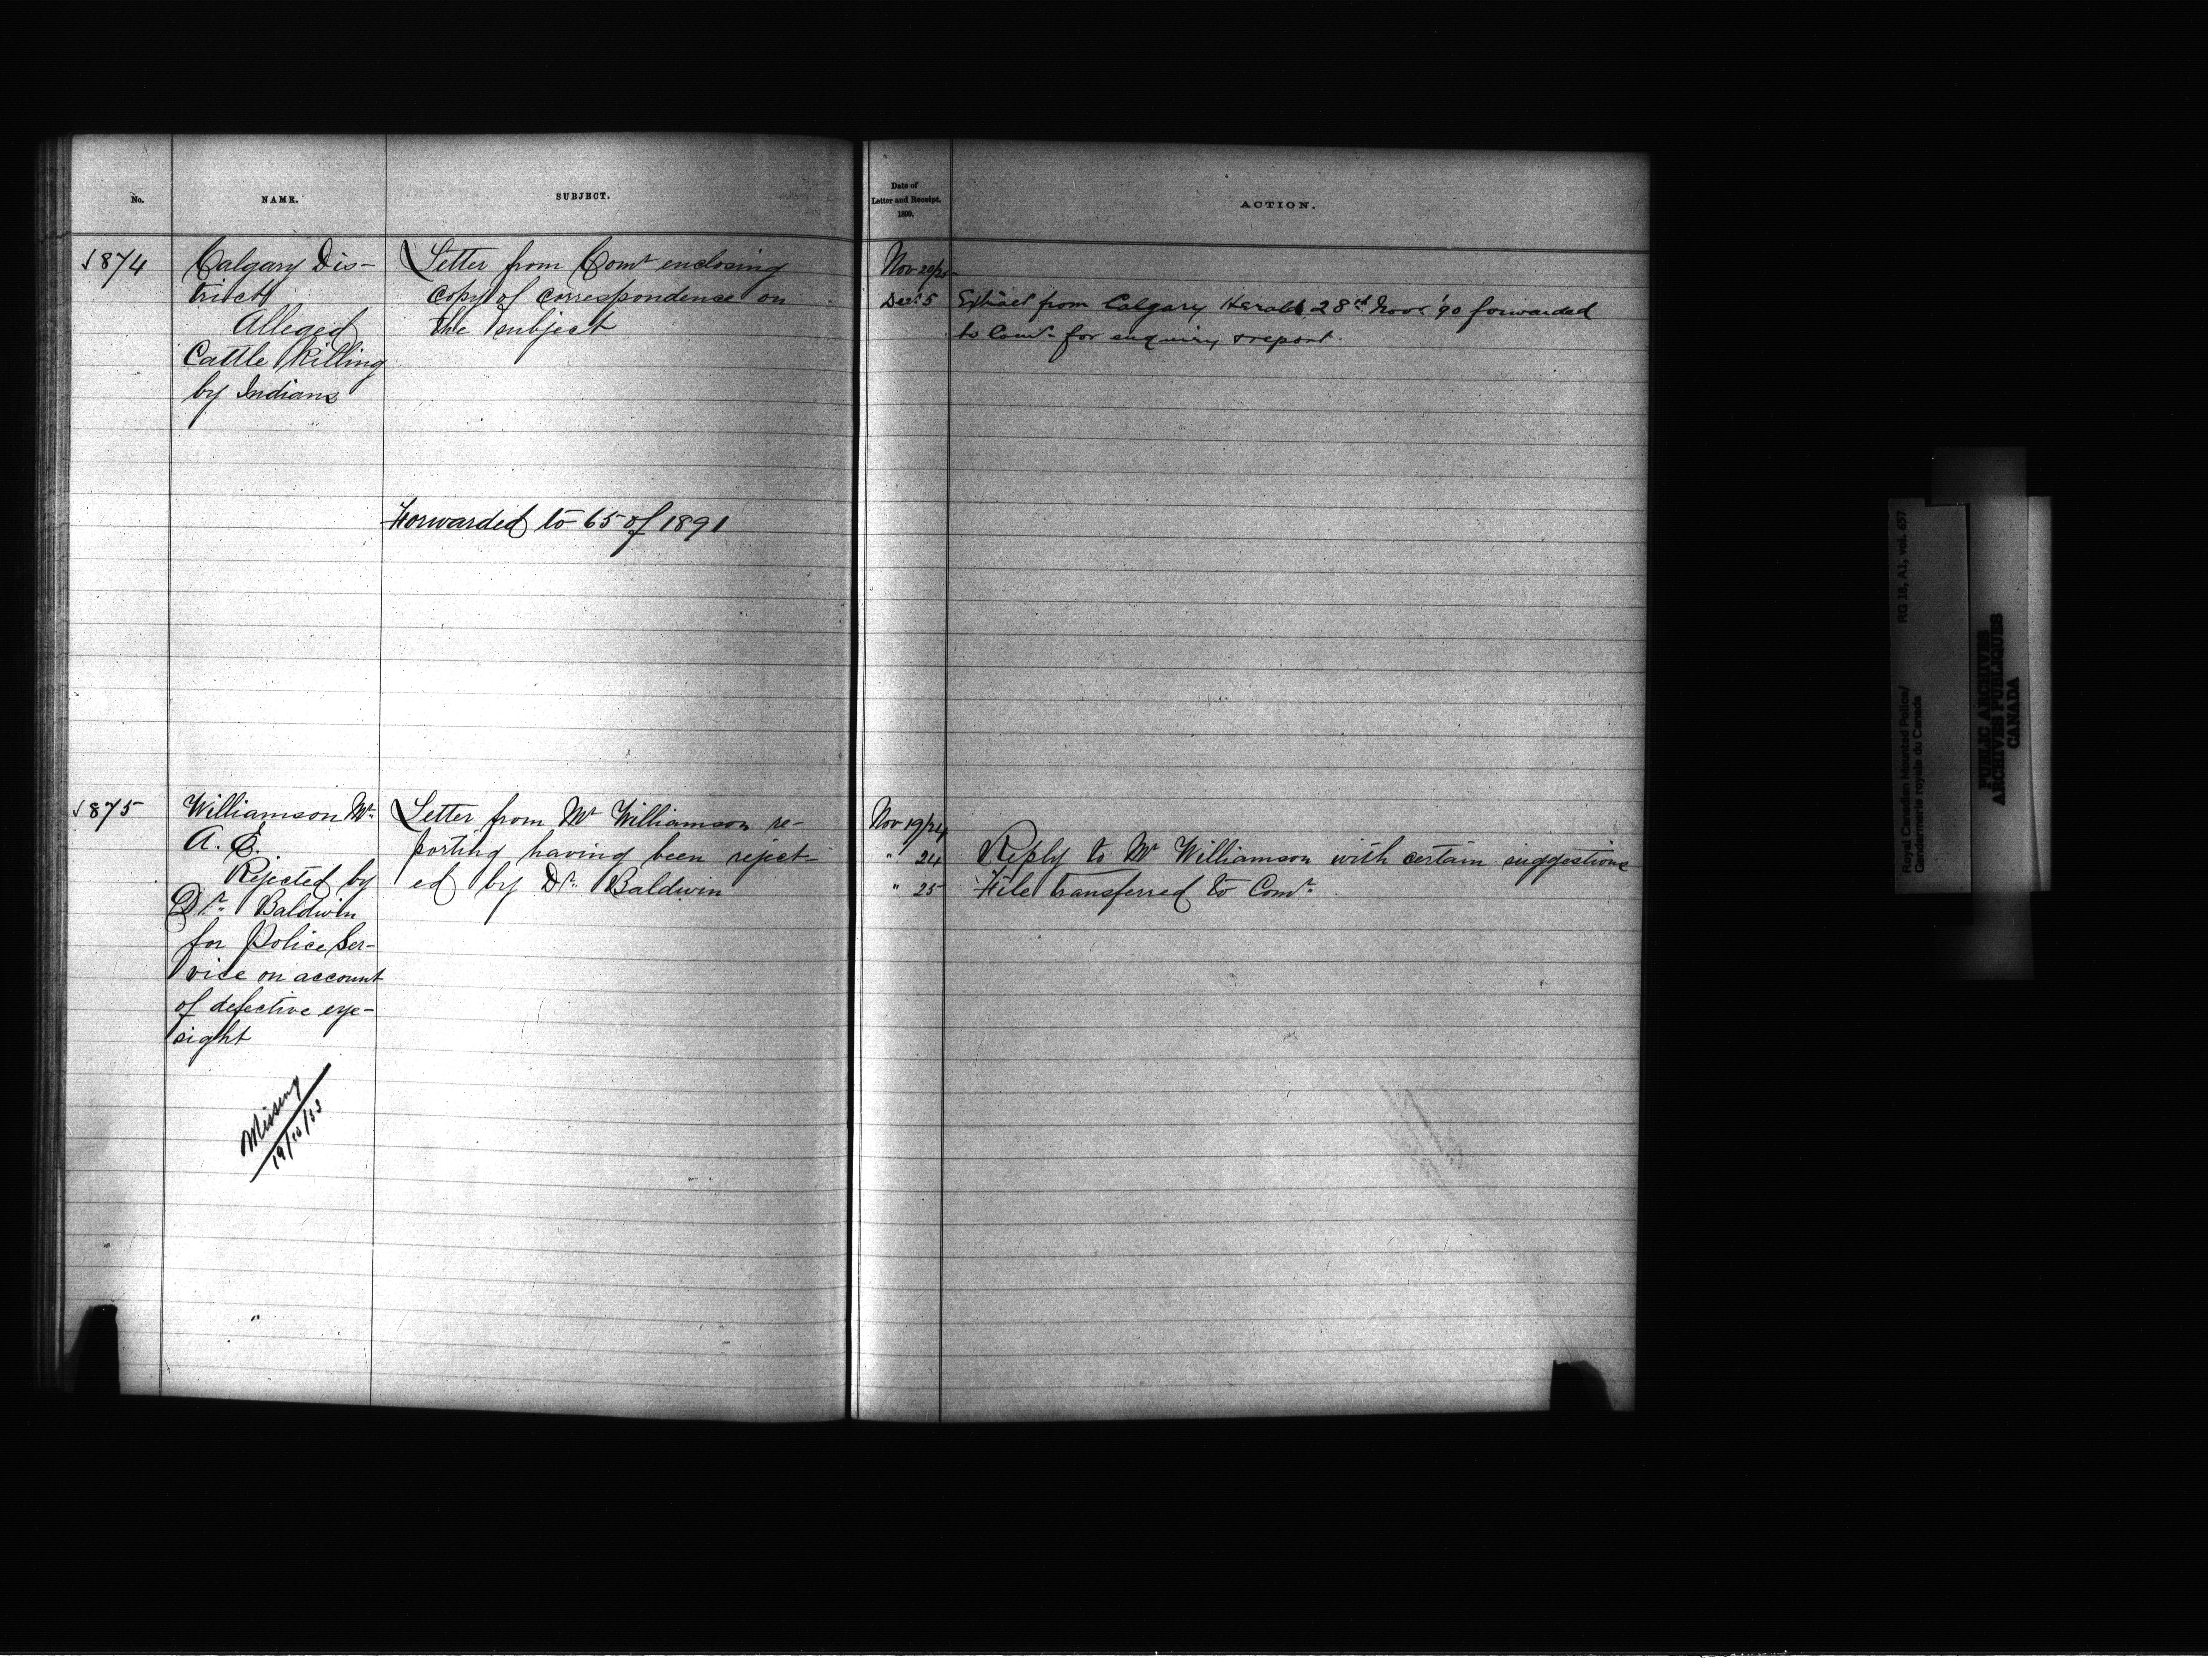 No.
NAME.
SUBJECT.
Date of
Letter and Receipt.
1890.
ACTION.
1874
Calgary Dis-
trict
Alleged
Cattle Killing
by Indians
Letter from Comr enclosing
copy of correspondence on
the subject
Forwarded to 65 of 1891
Nov 20/25
Decr 5
Extract from Calgary Herald 28th Novr '90 forwarded
to Comr for enquiry & report.
1875
Williamson Mr
A. E.
Rejected by
Dr. Baldwin
for Police Ser-
vice on account
of defective eye-
sight
Missing
19/10/53
Letter from Mr Williamson re-
porting having been reject-
ed by Dr. Baldwin
Nov 19/24
" 24
Reply to Mr Williamson with certain suggestions
" 25
File transferred to Comr.
Royal Canadian Mounted Police/
Gendarmerie royale du Canada
RG 18, A1, vol. 657
PUBLIC ARCHIVES
ARCHIVES PUBLIQUES
CANADA